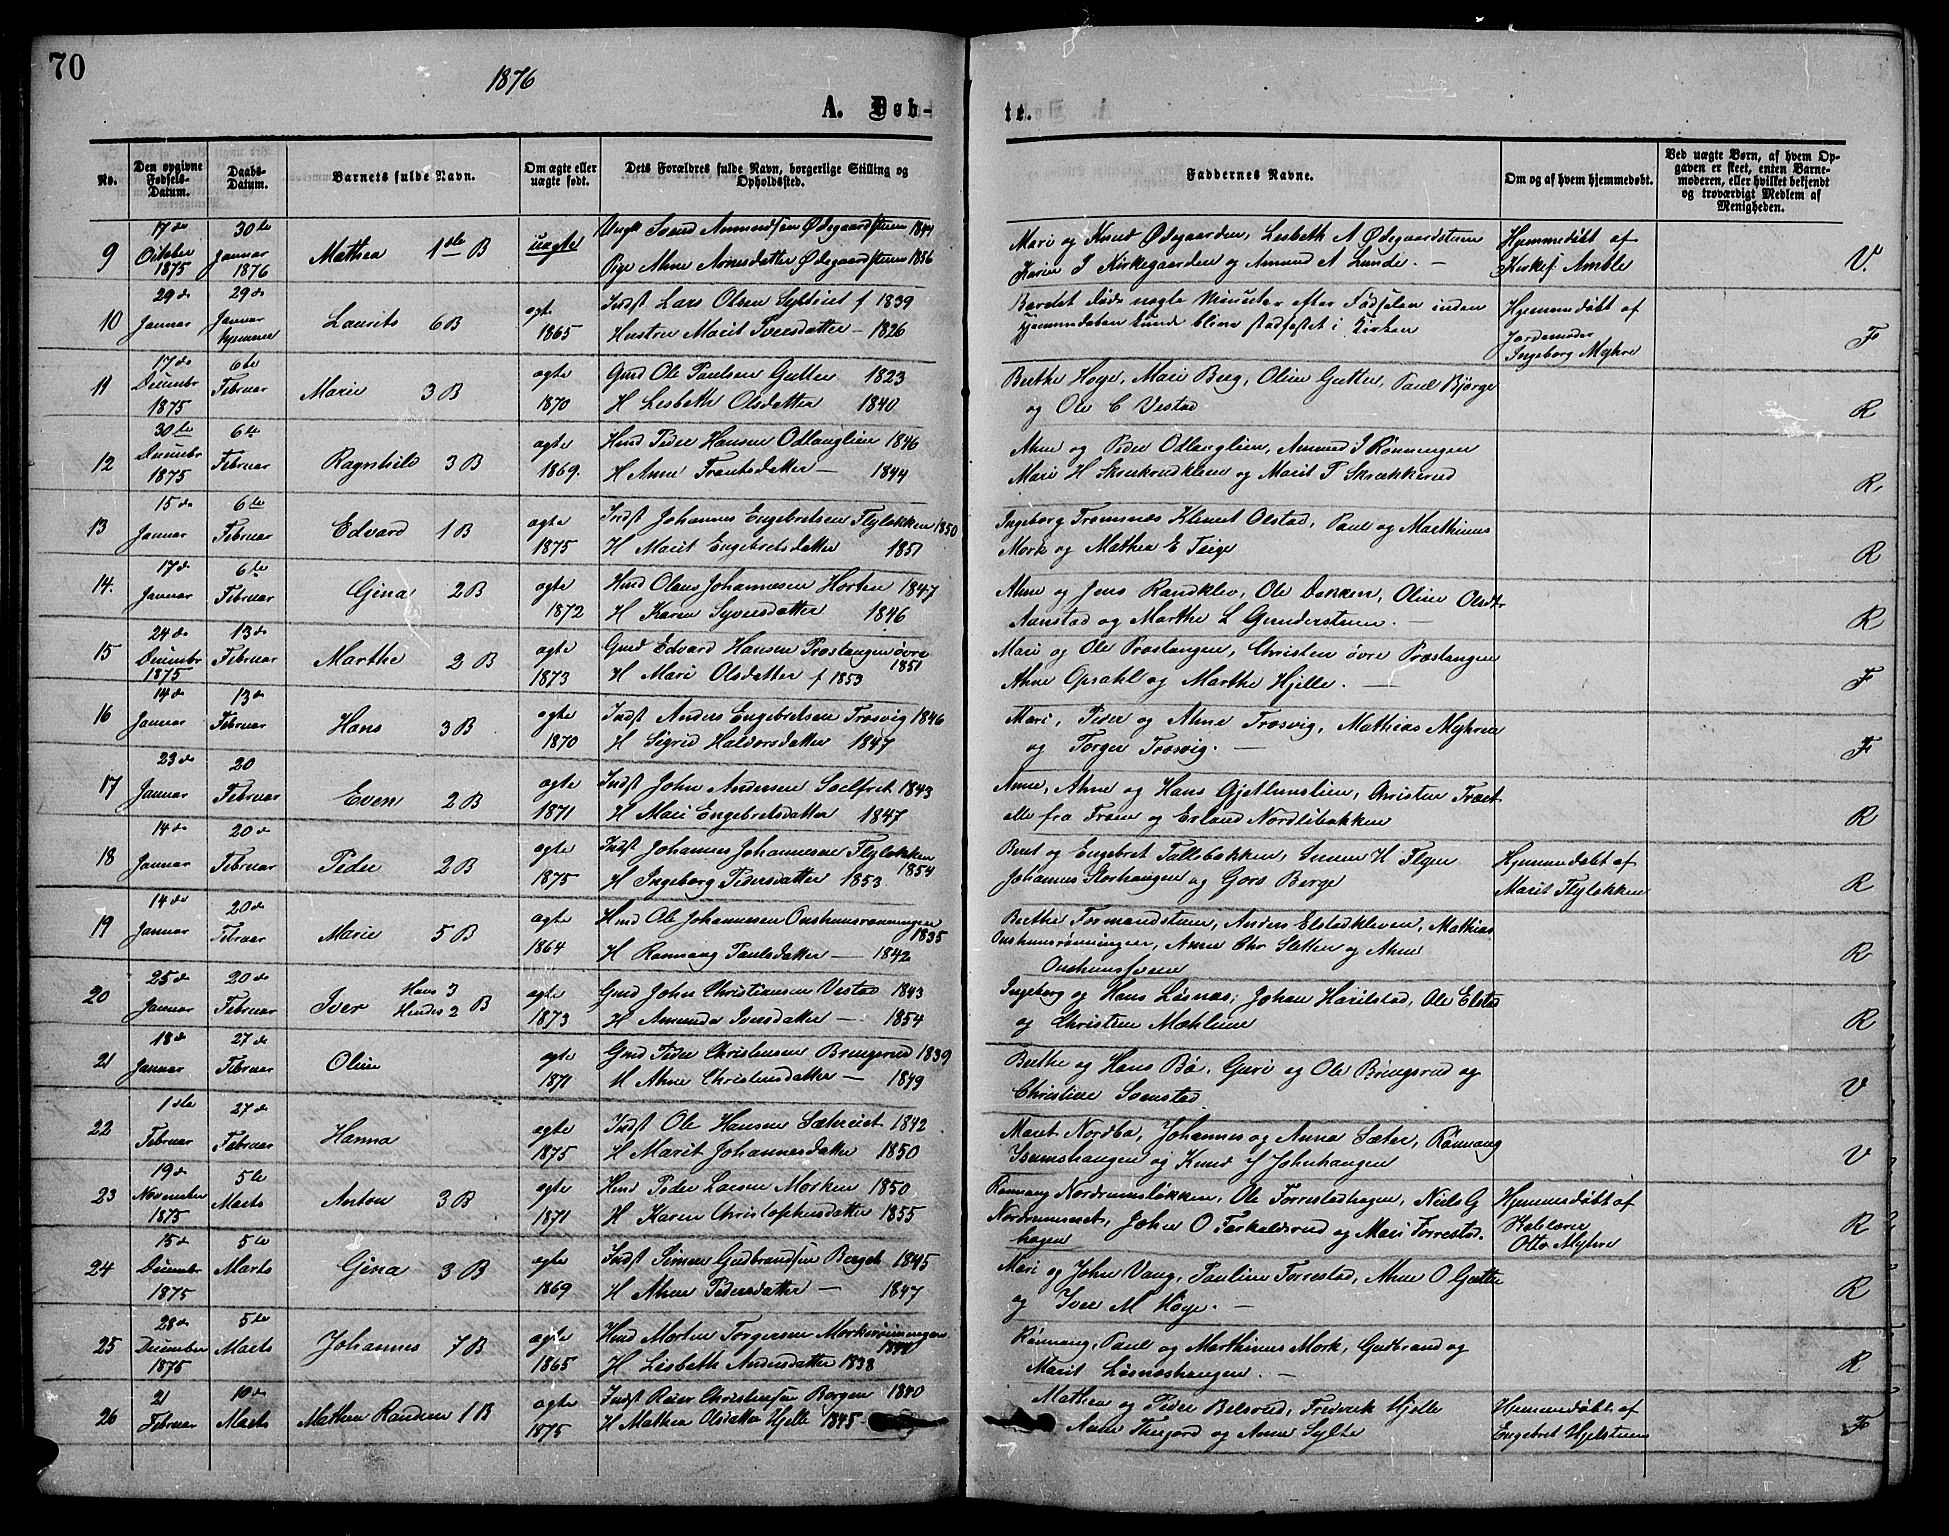 70
1876
A. Døb-
te.
No.
Den opgivne Fødsels-Datum.
Daabs-Datum.
Barnets fulde Navn.
Om ægte eller uægte født.
Dets Forældres fulde Navn, borgerlige Stilling og Opholdssted.
Faddernes Navne.
Om og af hvem hjemmedøbt.
Ved uægte Børn, af hvem Opgaven er skeet, enten Barnemoderen, eller hvilket bekjendt og troværdigt Medlem af Menigheden.
9 17de October 1875 30te Januar 1876 Mathea 1ste B uægte
Ungk Svend Amundsen Ødegaardstuen 1844
Pige Ahne Arnesdatter Ødegaardstuen 1856
Mari og Knud Ødegaarden, Lisbeth A Ødegaardstuen
Karen I Kirkegaarden og Amund A Lunde. —
Hjemmedøbt af
Kirkes. Amble
V.
10 29de Januar 29de Januar hjemme Laurits 6 B ægte 1865
Indst Lars Olsen f 1839
Hustru Marit Iversdatter — 1826
Barnet døde nogle Minuter efter Fødselen inden
hjemmedaaben kunde blive stadfæstet i Kirken
Hjemmedøbt af
Jordemoder
Ingeborg Myhre
F
11 17de Decembr 1875 6te Februar Marie 3 B ægte 1870
Gmd Ole Paulsen Gutter 1823
H Lisbeth Olsdatter 1840
Berthe Hoge, Mari Berg, Oline Gutter, Paul Bjørge
og Ole C Vestad
R
12 30te Decembr 1875 6te Februar Ragnhild 3 B ægte 1869.
Hmd Peder Hansen Odlauglien 1846
H Anne Frantsdatter — 1844
Ahne og Peder Odlauglien, Amund I Rønningen
Mari H og Marit P Skrækkerud
R.
13 15de Januar 6te Februar Edvard 1 B ægte 1875
Indst Johannes Engebretsen Flyløkken 1850
H Marit Engebretsdatter 1851
Ingeborg Tromsnæs Klemet Olstad, Paul og Marthinus
Mork og Mathea E Teige
R
14. 17de Januar 6te Februar Gina 2 B ægte 1872
Hmd Olaus Johannesen Horten 1847
H Karen Syversdatter 1846
Ahne og Jens Randklev, Ole Dokken, Oline Olsdr
Aanstad og Marthe L Gunderstuen. —
R
15 24de Decembr 1875 13de Februar Marthe 2 B ægte 1873
Gmd Edvard Hansen Præstangen øvre 1851
H Mari Olsdatter f 1853
Mari og Ole Præstangen, Christen øvre Præstangen
Ahne Opsahl og Marthe Hjelle. —
F
16 14de Januar 13de Februar Hans 3 B ægte 1870
Indst Anders Engebretsen Trosvig 1846
H Sigrid Haldorsdatter 1847
Mari, Peder og Ahne Trosvig, Mathias Myhren
og Torger Trosvig. —
F
17 23de Januar 20 Februar Even 2 B ægte 1871
Indst John Andersen Soelfret 1843
H Mari Engebretsdatter 1847
Anne, Ahne og Hans Gjetlumslien, Christen Træet
alle fra Fron og Erland Nordlibakken
R
18 14de Januar 20de Februar Peder 2 B ægte 1875
Indst Johannes Johannesen Flyløkken 1854
H Ingeborg Pedersdatter 1853
Beret og Engebret Tallebakken, Simen H Flyen
Johannes Storhaugen og Goro Berge
Hjemmedøbt af
Marit Flyløkken
R
19 14de Januar 20de Februar Marie 5 B ægte 1864
Hmd Ole Johannesen Onshusrønningen 1835
H Rønnaug Paulsdatter — 1842
Berthe Formandstuen, Anders Elstadkleven, Mathias
Onshumsrønningen, Anne Chr Sletten og Ahne
Onshumssveen
R
20 25de Januar 20de Februar Iver Hans 3 Hendes 2 B ægte 1873
Gmd John Christiansen Vestad 1843
H Amunda Iversdatter — 1854
Ingeborg og Hans Løsnæs, Johan Harilstad, Ole Elstad
og Christine Mæhlum
R
21 18de Januar 27de Februar Oline ægte 1871
Gmd Peder Christensen Bringsrud 1839
H Ahne Christensdatter — 1849
Berthe og Hans Bø, Guri og Ole Bringsrud og
Christine Svenstad
V
22 1ste Februar 27de Februar Hanna ægte 1875
Indst Ole Hansen 1842
H Marit Johannesdatter 1850
Maret Nordbø, Johannes og Anna Sæter, Rønnaug
Isumshaugen og Knud Johnhaugen
V
23 19de November 1875 5te Marts Anton 3 B ægte 1871
Hmd Peder Larsen Morken 1850
H Karen Christophersdatter 1855
Rønnaug Nordrumsløkken, Ole Forrestadhagen, Niels G
Nordrumseset, John O Torkeldsrud og Mari Forrestad-
hagen
Hjemmedøbt af
Otto Myhre
R
24 15de Decembr 1875 5te Marts Gina 3 B ægte 1869
Indst Simen Gudbrandsen Berget 1845
H Ahne Pedersdatter — 1847
Mari og John Vang, Pauline Forrestad, Ahne O Gutter
og Iver M Hoge. —
R
25 28de December 1875 5te Marts Johannes 7 B ægte 1865
Hmd Morten Torgersen Morkrønningen
H Lisbeth Andersdatter 1838
Rønnaug, Paul og Marthinus Mork, Gudbrand og
Marit Løsnæshaugen. —
R
26 21 Februar 10de Marts Mathea Randine 1 B ægte 1875
Indst Reier Christensen Borgen 1840
H Mathea Olsdatter Hjelle 1845
Mathea og Peder Belsrud, Frederik Hjelle
Anne og Anne Sylte
Hjemmedøbt af
Engebret Hjelstuen
F